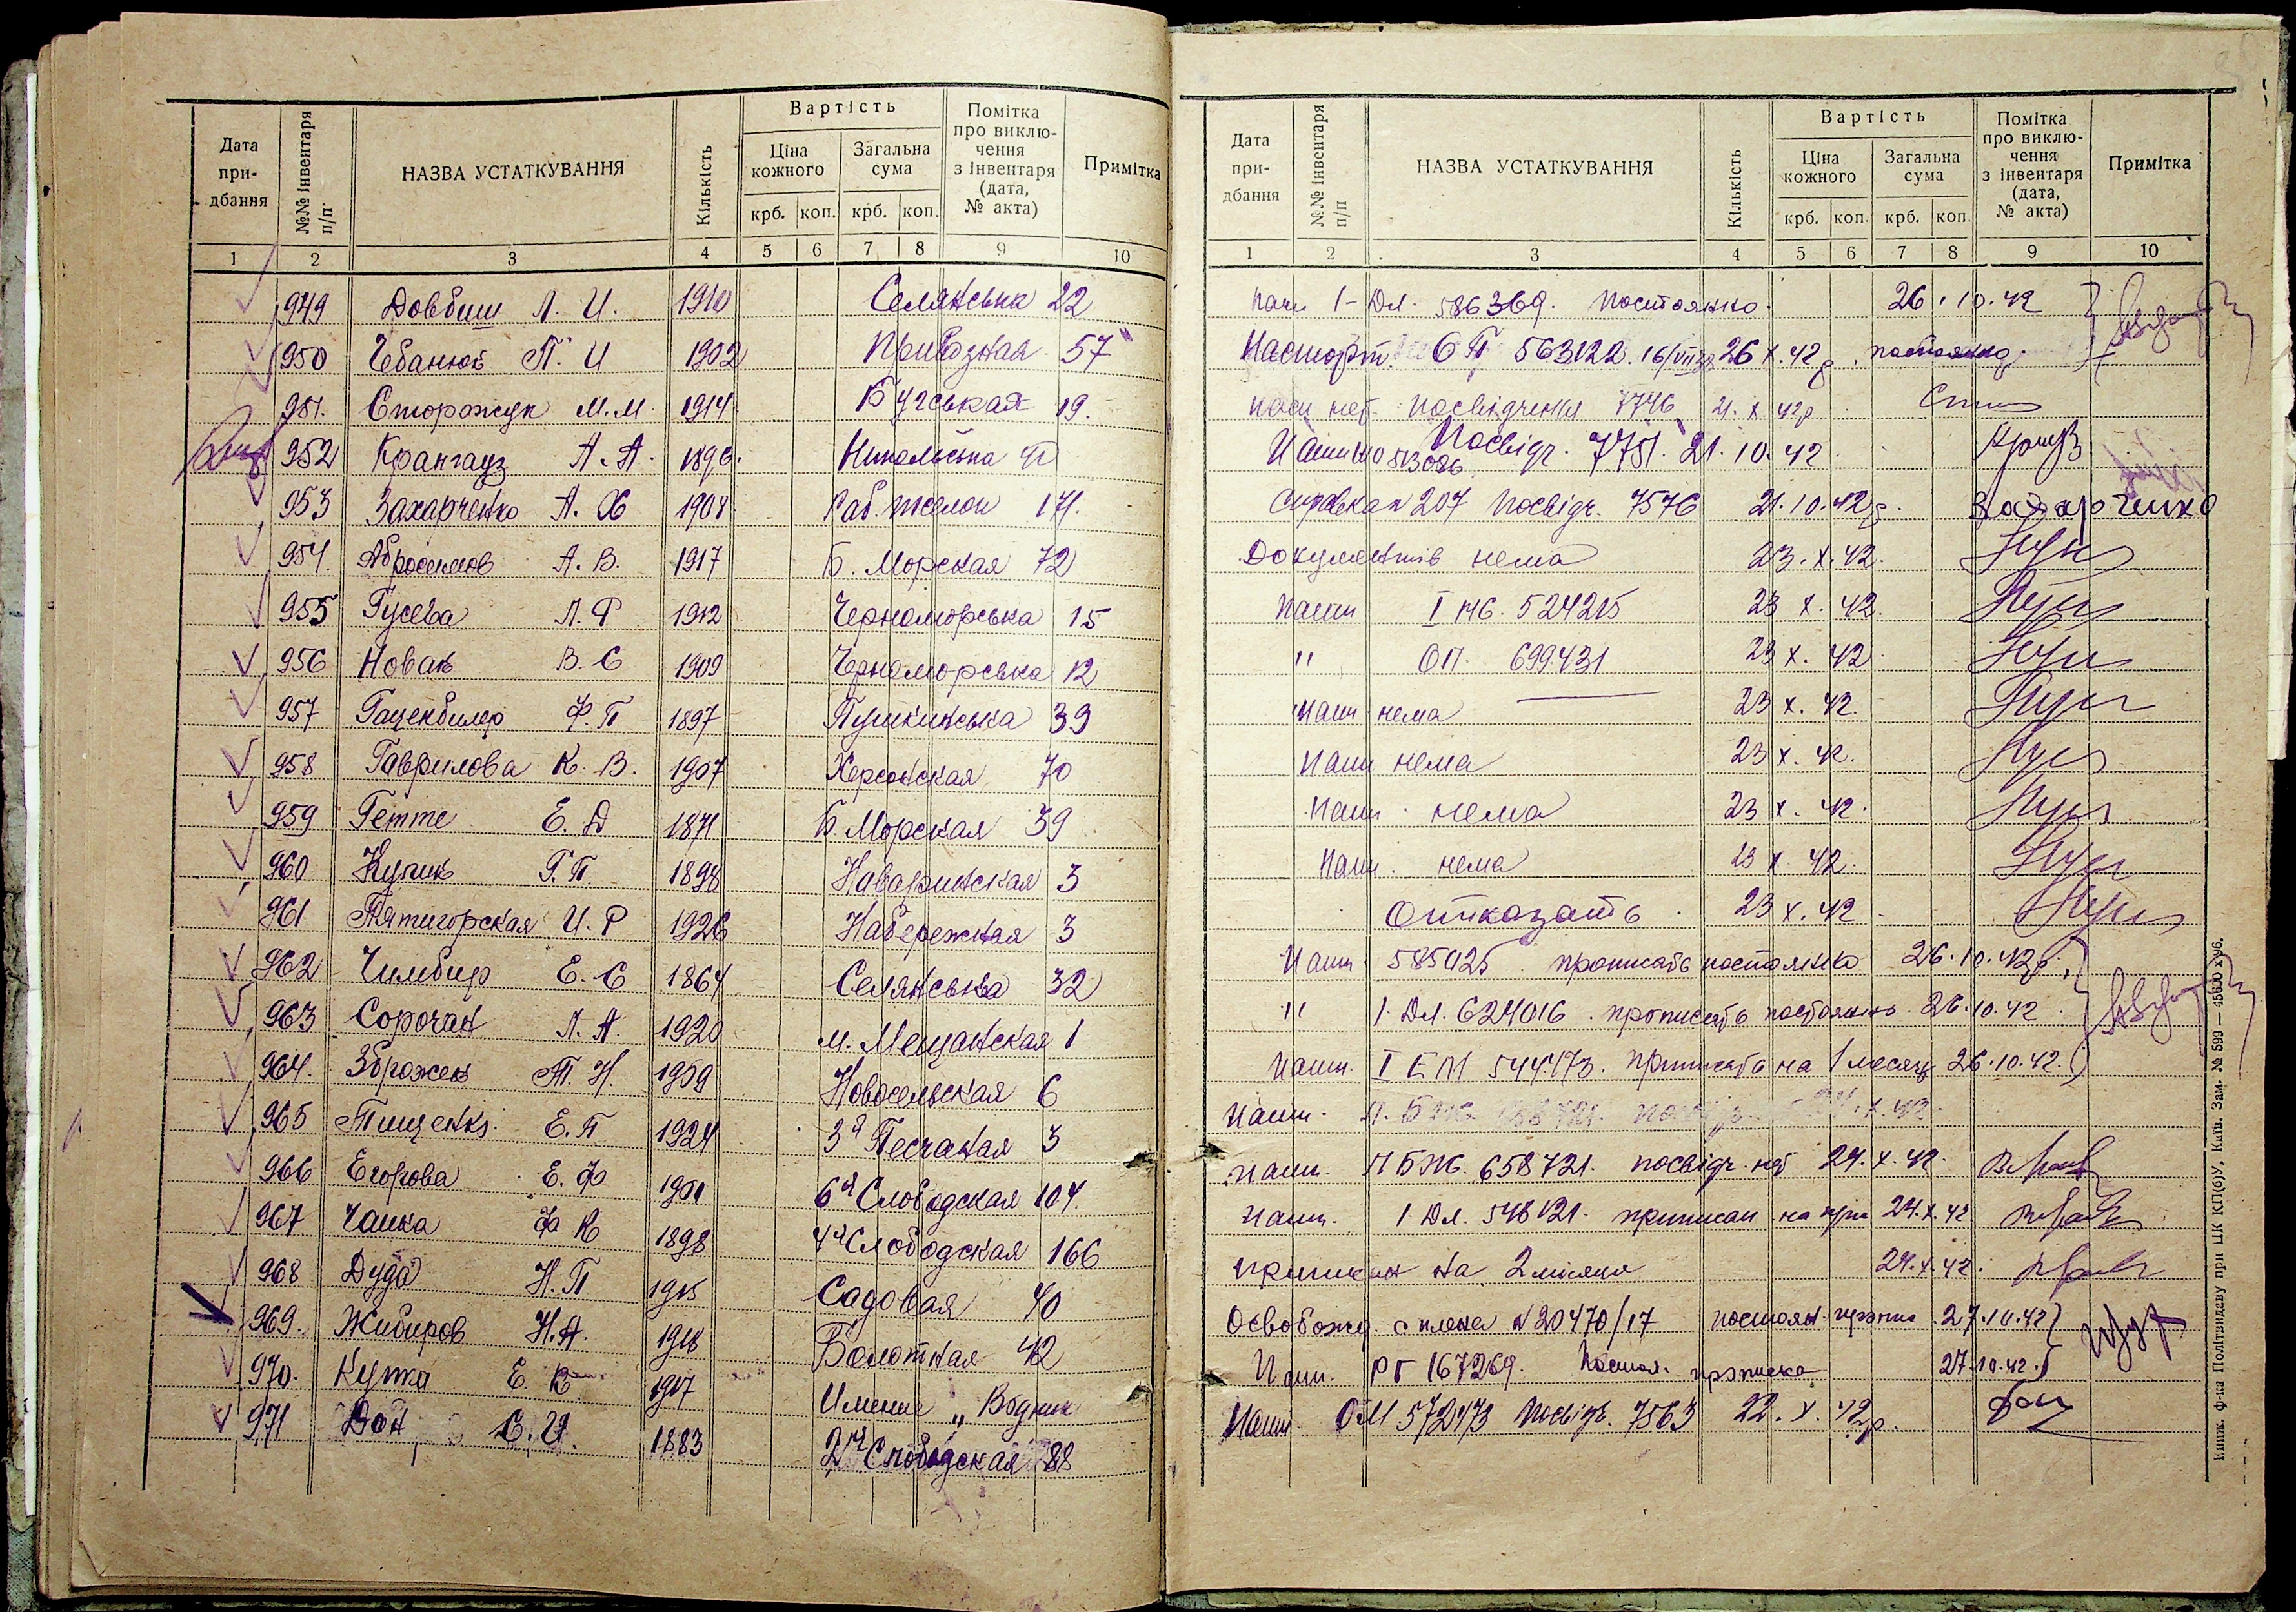 Дата при- дбання
№№ інвентаря п/п
НАЗВА УСТАТКУВАННЯ
Кількість
Вартість
Ціна кожного
Загальна сума
крб. коп. крб. коп.
Помітка про виклю- чення з інвентаря (дата, № акта)
Примітка
1 2 3 4 5 6 7 8 9 10
949 Довбиш Л. И. 1910 Селянська 22
950 Чебанюк П. И 1902 Привозная 57
951. Сторожук М. М. 1914 Бугськая 19.
952 Крангауз А. А. 1896. Никольська
953 Захарченко А. Х 1908 Раб. 171.
954. Абросимов А. В. 1917 Б. Морская 72
955 Гусева Л. Ф 1912 Черноморська 15
956 Новак В. С 1909 Черноморська 12
957 Гаценбилер Ф. П 1897 Пушкинська 39
958 Гаврилова К. В. 1907 Херсонская 70
959 Гетте Е. Д 1871 Б. Морская 39
960 Кулик Г. П. 1898 Наваринская 3
961 Пятигорская И. Р 1926 Набережная 3
962 Чимбир Е. С 1864 Селянська 32
963 Сорочан Л. А. 1920 М. Мещанская 1
964. Зброжек Т. Н. 1909 Новосельская 6
965 Тищенко Е. П 1924 3я Песчаная 3
966 Егорова Е. Ф 1901 6я Слободская 104.
967 Чайка Ф К 1898 4я Слободская 166
968 Дуда Н. П 1915 Садовая 40
969. Жибиров Н. А. 1918 Болотная 42
970. Купка Е. К 1917 Имение „ Водник
971 Дон С. И. 1883 2я Слободская 88
Дата при- дбання
№№ інвентаря п/п
НАЗВА УСТАТКУВАННЯ
Кількість
Вартість
Ціна кожного
Загальна сума
крб. коп. крб. коп.
Помітка про виклю- чення з інвентаря (дата, № акта)
Примітка
1 2 3 4 5 6 7 8 9 10
пасп 1 - Дл. 586369. постоянно. 26. 10. 42
Паспорт. ОП 563122. 26 X. 42 р. постоянно
посвідчення 7746 21. X. 42р
513086 Посвідч. 7751. 21. 10. 42
Справка 207 Посвідч. 7576 21. 10. 42р. Захарченко
Документів нема 23. X. 42.
пашп I 524215 23 X. 42.
" ОП. 699431 23 X. 42
пашп нема 23 X. 42.
пашп нема 23 X. 42.
пашп. нема 23 X. 42.
пашп. нема 23 X. 42.
Отказать 23 X. 42
пашп. 585025 прописать постоянно 26. 10. 42р.
" 1. Дл. 624016. прописать постоянно 26. 10. 42
пашп. I ЕМ прописать на 1 месяц 26. 10. 42.
пашп.
пашп. П БЖ. 658721. посвідч. 24. X. 42
пашп. 1 Дл. 548121. прописан на 24. X. 42
прописан на 2 місяця 24. X. 42.
Освобожд. с плена № 20470/17 постоян. 27. 10. 42
Пашп. РГ 167269. Постоя. прописка 27. 10. 42.
Пашп ОМ 572473 Посвідч. 7563 22. X. 42р.
Книж. ф-ка Політвидаву при ЦК КП(б)У. Київ. Зам. № 599 —